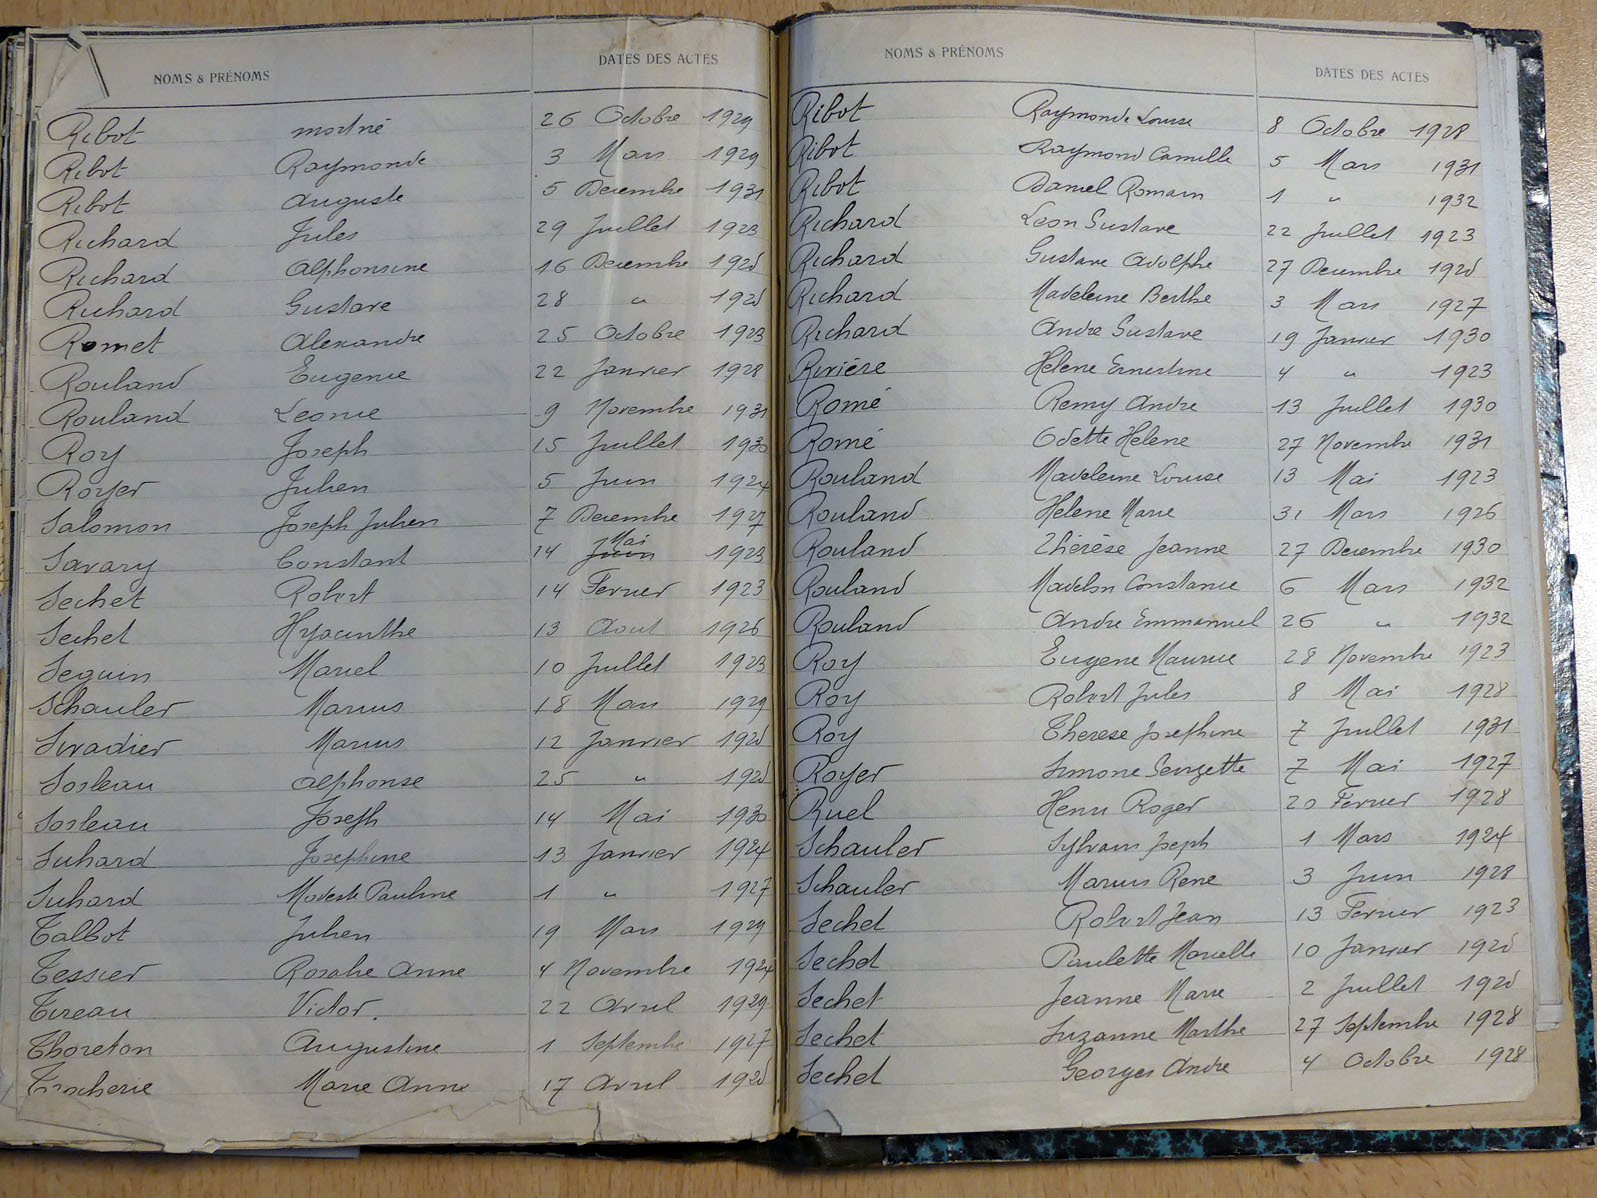 NOMS & PRÉNOMS DATES DES ACTES
Ribot mort né 26 Octobre 1929
Ribot Raymonde 3 Mars 1929
Ribot Auguste 5 Decembre 1931
Richard Jules 29 Juillet 1923
Richard Alphonsine 16 Decembre 1925
Richard Gustave 28 " 1925
Romet Alexandre 25 Octobre 1923
Rouland Eugenie 22 Janvier 1928
Rouland Leonie 9 Novembre 1931
Roy Joseph 15 Juillet 1930
Royer Julien 5 Juin 1924
Salomon Joseph Julien 7 Decembre 1927
Savary Constant 14 Juin Mai 1923
Sechet Robert 14 Fevrier 1923
Sechet Hyacinthe 13 Aout 1926
Seguin Marcel 10 Juillet 1923
Schauler Marius 18 Mars 1929
Sivadier Marius 12 Janvier 1925
Sosleau Alphonse 25 " 1925
Sosleau Joseph 14 Mai 1930
Suhard Josephine 13 Janvier 1924
Suhard Modeste Pauline 1 " 1927
Talbot Julien 19 Mars 1929
Tessier Rosalie Anne 4 Novembre 1924
Tireau Victor. 22 Avril 1929
Thoreton Augustine 1 Septembre 1927
Trocherie Marie Anne 17 Avril 1925
NOMS & PRÉNOMS DATES DES ACTES
Ribot Raymonde Louise 8 Octobre 1928
Ribot Raymond Camille 5 Mars 1931
Ribot Daniel Romain 1 " 1932
Richard Leon Gustave 22 Juillet 1923
Richard Gustave Adolphe 27 Decembre 1925
Richard Madeleine Berthe 3 Mars 1927
Richard Andre Gustave 19 Janvier 1930
Rivière Helene Ernestine 4 " 1923
Romé Remy Andre 13 Juillet 1930
Romé Odette Helene 27 Novembre 1931
Rouland Madeleine Louise 13 Mai 1923
Rouland Helene Marie 31 Mars 1926
Rouland Thérèse Jeanne 27 Decembre 1930
Rouland Madelon Constance 6 Mars 1932
Rouland Andre Emmanuel 26 " 1932
Roy Eugene Maurice 28 Novembre 1923
Roy Robert Jules 8 Mai 1928
Roy Therese Josephine 7 Juillet 1931
Royer Simone Georgette 7 Mai 1927
Ruel Henri Roger 20 Fevrier 1928
Schauler Sylvain Joseph 1 Mars 1924
Schauler Marius Rene 3 Juin 1928
Sechet Robert Jean 13 Fevrier 1923
Sechet Paulette Marcelle 10 Janvier 1925
Sechet Jeanne Marie 2 Juillet 1925
Sechet Suzanne Marthe 27 Septembre 1928
Sechet Georges Andre 4 Octobre 1928